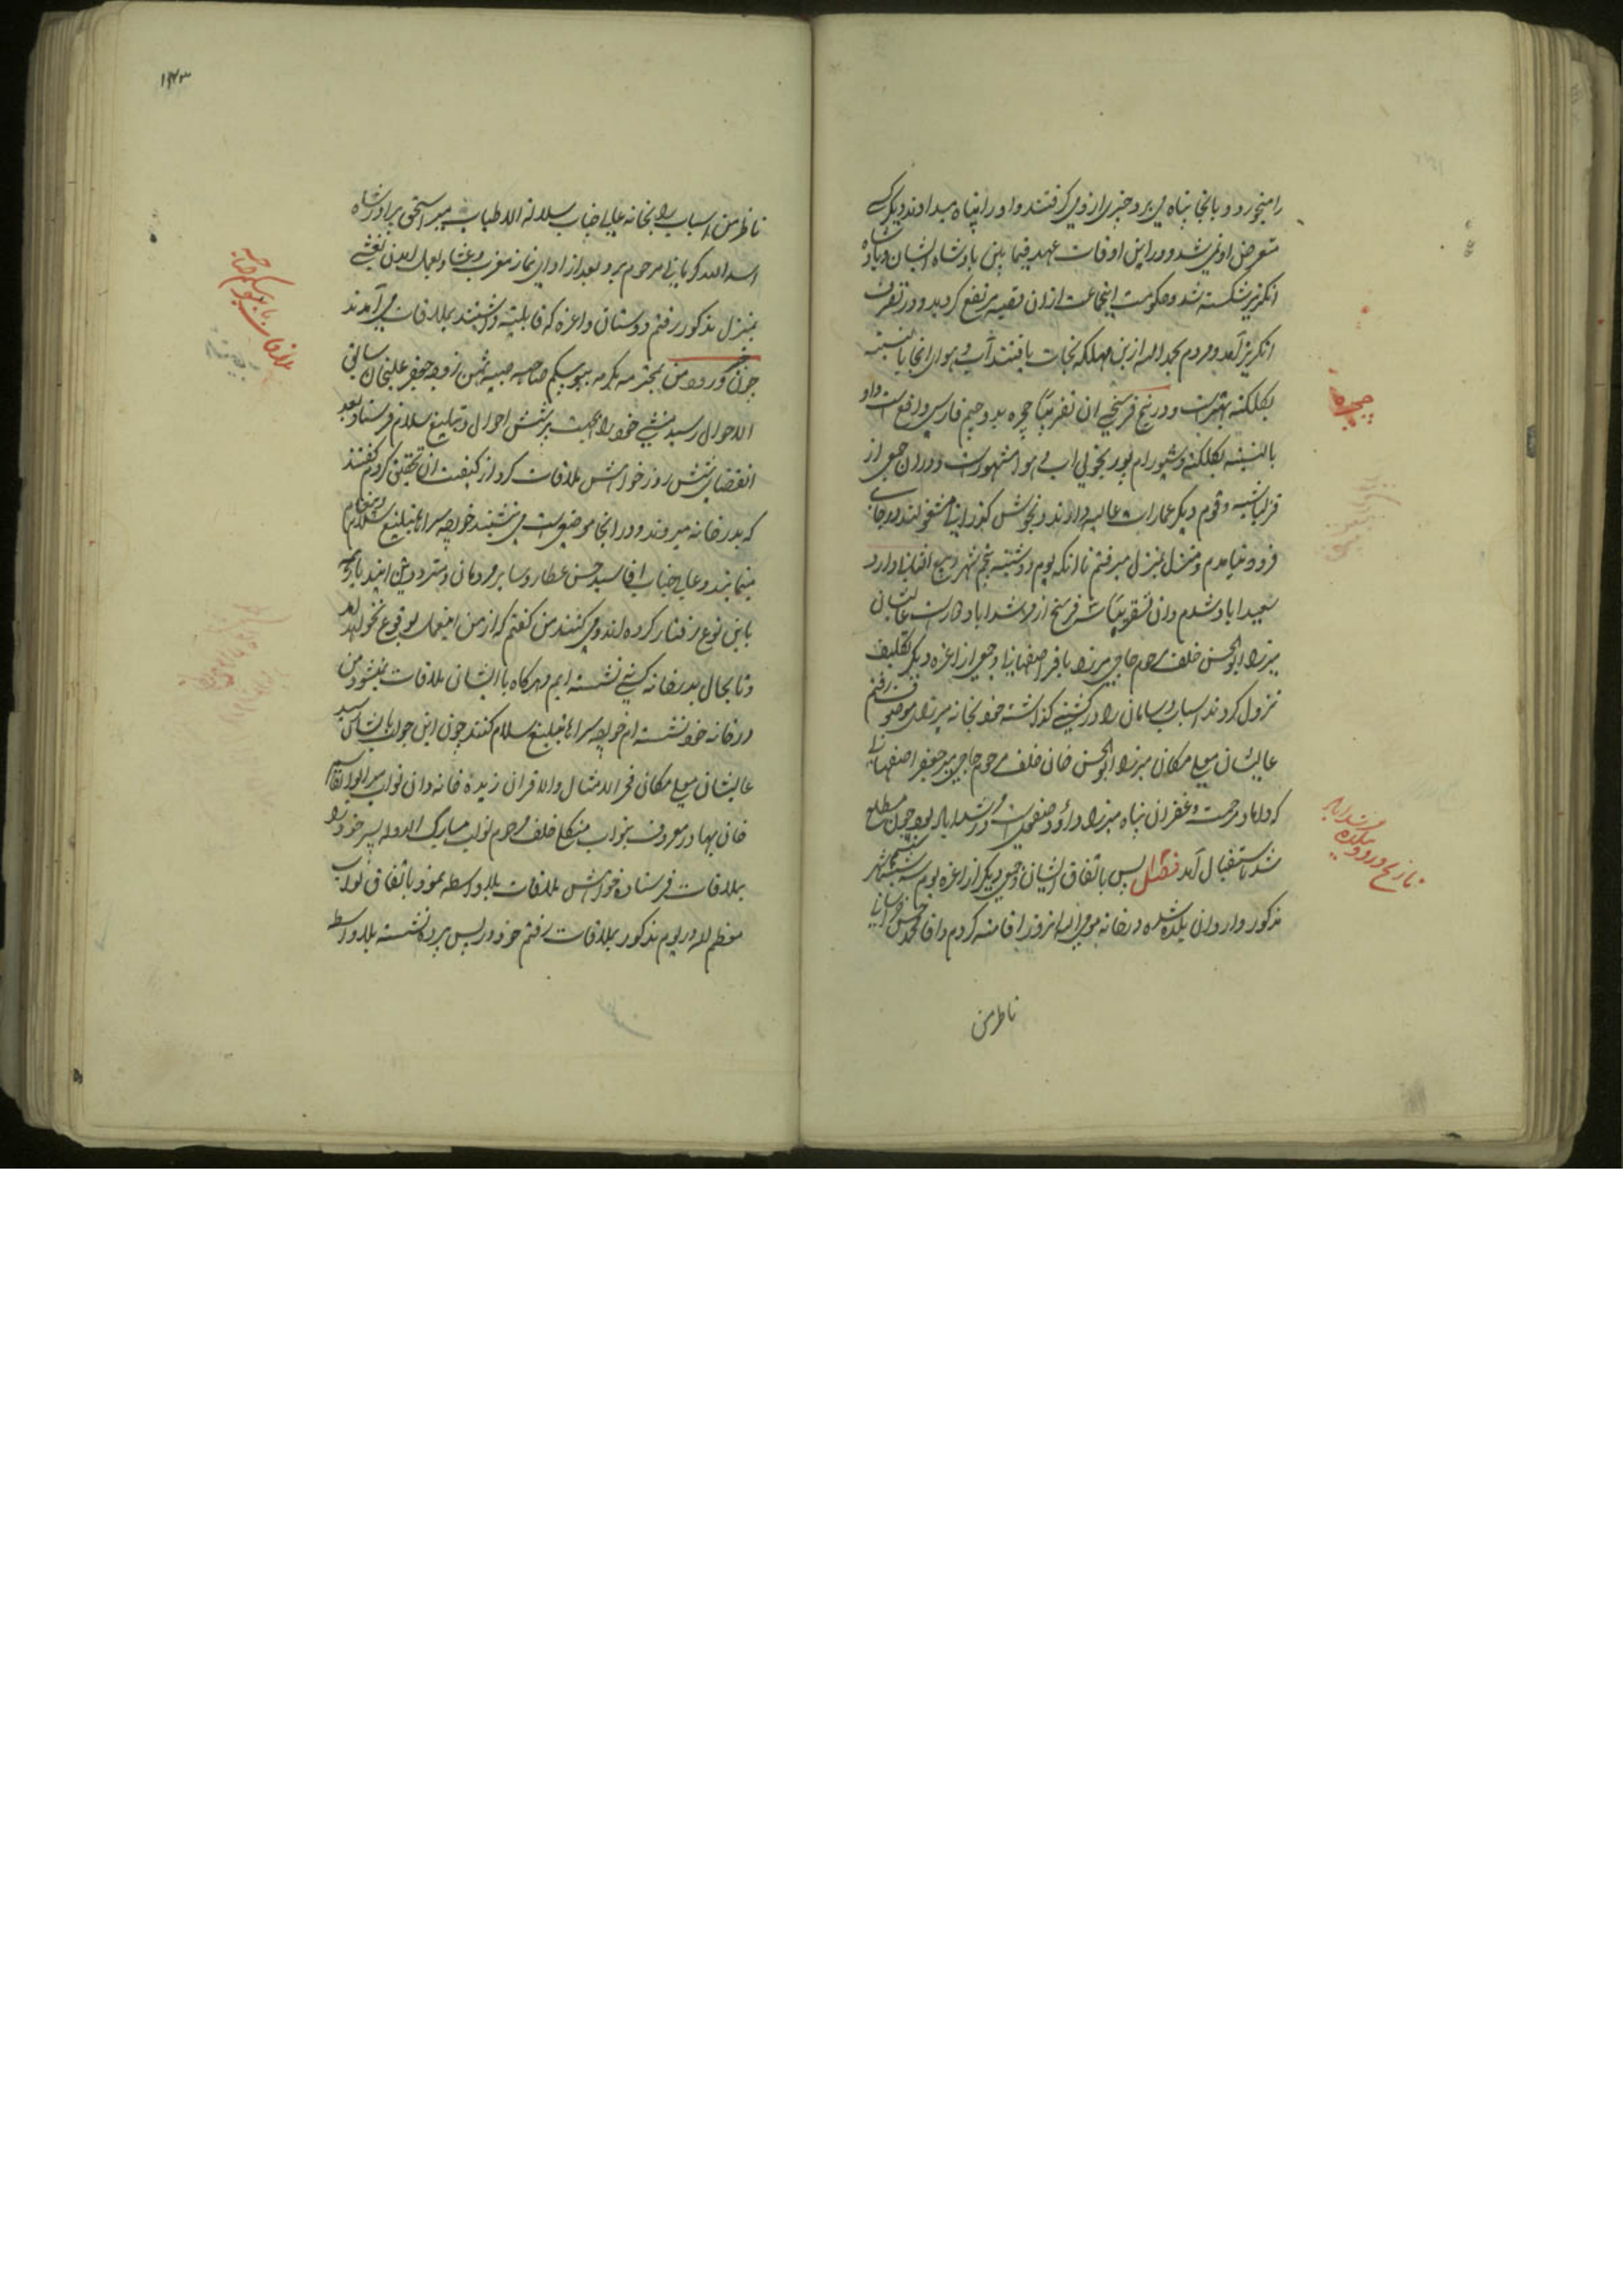 را میخورد و بانجا پناه می برد و جبری از وی گرفتند و او را پناه میدادند دیگر کسی
متعرض او نمی شد و در این اوقات عهد فیما بین پادشاه ایشان و پادشاه
انگریز شکسته شد و حکومت اینجماعت از آن قصبه مرتفع گردید و در تصرف
انگریز آمد و مردم بحمد الله ازین مهلکه نجات یافتند آب و هوای آنجا بالنسبه
بکلکته بهتر است و در پنج فرسخی آن تقریبا چچره بدو جیم فارسی واقع است و او
بالنسبه بکلکته و شیورام پور بخوبی آب و هوا مشهور است و در آن جمعی از
قزلباشیه و قوم دیگر عمارات عالیه دارند و بخوشی گذرانی مشغولند و در جائی
فرود نیامدم و منزل بمنزل میرفتم تا آنکه یوم دوشنبه پنجم شهر ربیع الثانی وارد
سعیداباد شدم و آن تقریبا شش فرسخ از مرشداباد دور است عالیشان
میرزا ابوالحسن خلف مرحوم حاجی میرزا باقر اصفهانی و جمعی از اعزه دیگر تکلیف
نزول کردند اسباب و سامان را در کشتی گذاشته خود بخانه میرزای موصوف رفتم
عالیشان معلی مکان میرزا ابوالحسن خان خلف مرحوم حاجی میر جعفر اصفهانی
که داماد رحمت و غفران پناه میرزا داود صفوی است و در مرشداباد بود چون مطلع
شد باستقبال آمد فصل پس باتفاق ایشان و جمعی دیگر از اعزه یوم سه شنبه ششم شهر
مذکور وارد آن بلده شده در خانه مومی الیه آنروز اقامت کردم و آقا محمد حسن
ناظر من
چچره
تاریخ ورود بلده مرشداباد
۱۴۳
ناظر من اسباب را بخانه عالی جناب سلالة الاطیاب میر اسحق برادرزاده
اسد الله کربلائی مرحوم برد و بعد از ادای نماز مغرب و عشا
بمنزل مذکور رفتم دوستان و اعزه که قابلیت داشتند بملاقات می آمدند
چون خبر ورود من بمحترمه مکرمه ببو بیگم صاحبه صبیه ثمن زوجه جعفر علیخان سابق
الاحوال رسید منشی خود را بجهت پرسش احوال و تبلیغ سلام فرستاد و بعد
انقضای شش روز خواهش ملاقات کرد از کیفیت آن تحقیق کردم گفتند
که بدر خانه میروند و در آنجا موضعی است می نشینند خواجه سراها تبلیغ سلام و پیغام
مینمایند و عالی جناب آقا سید حسن عطار و سایر مردمان
باین نوع رفتار کرده اند و می کنند من گفتم که از من اینعمل بوقوع نخواهد آمد
و تا بحال بدر خانه کسی ننشسته ایم و هر گاه با ایشان ملاقات بنشود من
در خانه خود نشسته ام خواجه سراها تبلیغ سلام کنند چون این جواب بایشان رسید
عالیشان معلی مکان فخر الامثال و الاقران زبده خاندان نواب میر ابو القاسم
خان بهادر معروف بنواب منگلی خلف مرحوم نواب مبارک الدوله پسر خود را
بملاقات فرستاده خواهش ملاقات بلا واسطه نمود باتفاق نواب
معظم له در یوم مذکور بملاقات رفتم خود در پس پرده نشسته بلا واسطه
ملاقات با ببو بیگم صاحبه